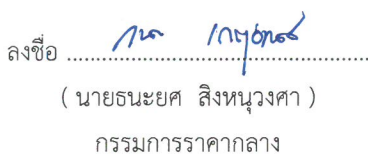 ลงชื่อ ..........................................................
( นายธนะยศ สิงหนุวงศา )
กรรมการราคากลาง